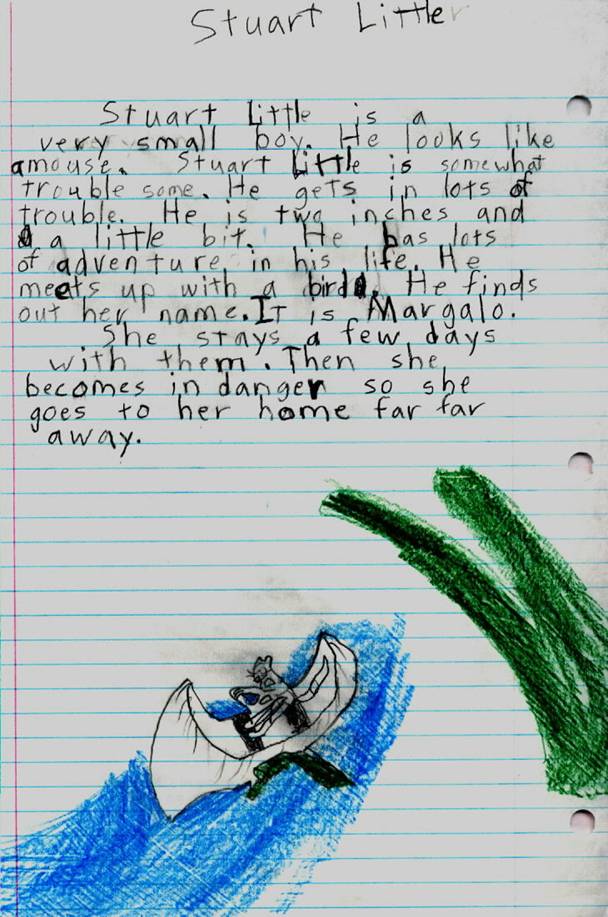 Stuart Little
Stuart Little is a
very small boy. He looks like
a mouse. Stuart Little is somewhat
trouble some. He gets in lots of
trouble. He is two inches and
a little bit. He has lots
of adventure in his life. He
meets up with a bird. He finds
out her name. It is Margalo.
She stays a few days
with them. Then she
becomes in danger so she
goes to her home far far
away.